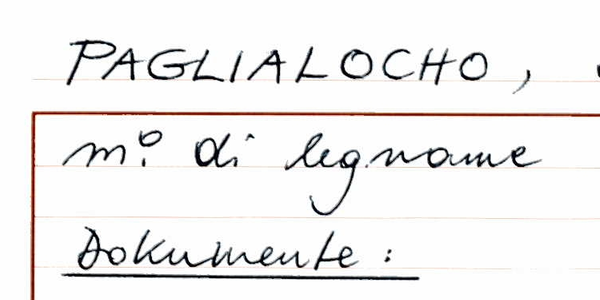 PAGLIALOCHO,
m.º di legname
Dokumente: